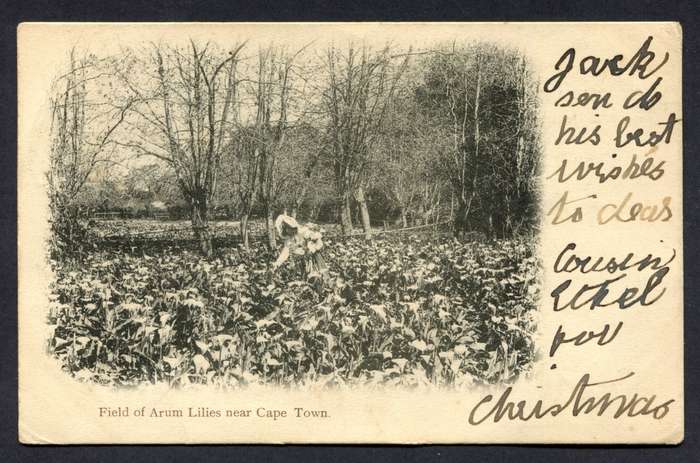 Jack
sends
his best
wishes
to dear
Cousin
Ethel
for
Christmas
Field of Arum Lilies near Cape Town.